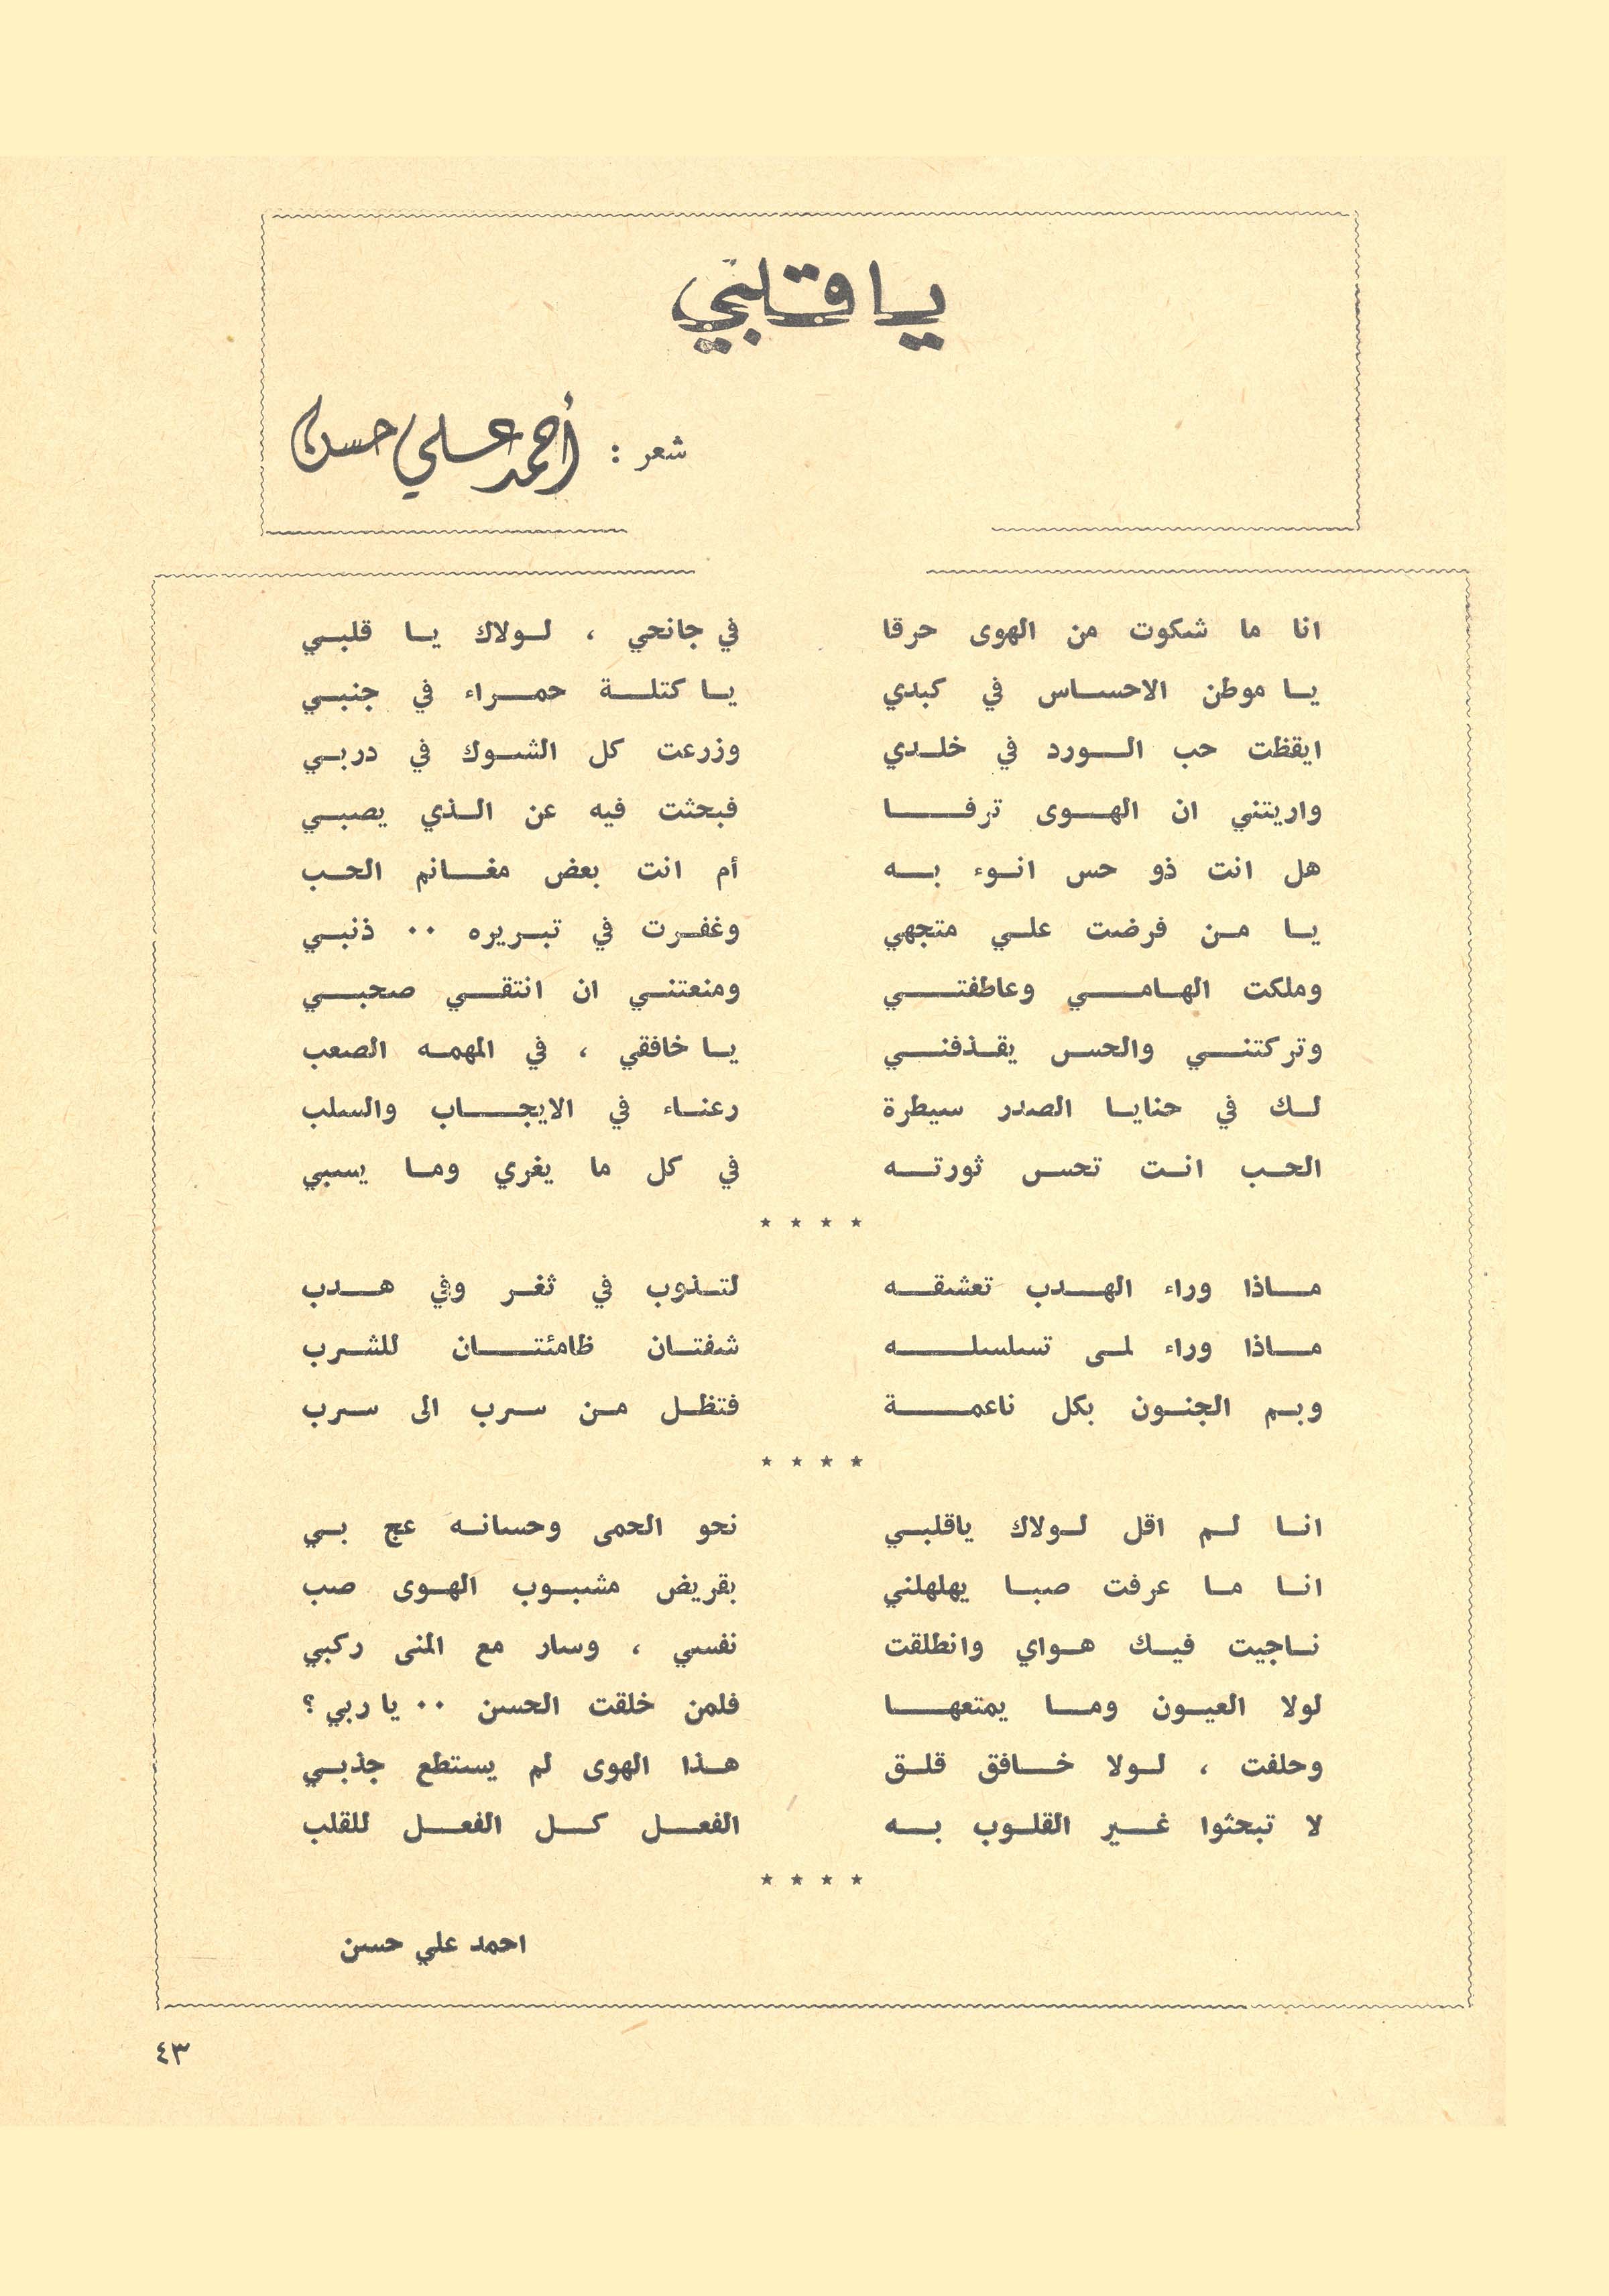 يا قلبي
شعر : أحمد علي حسن
انا ما شكوت من الهوى حرقا في جانحي ، لولاك يا قلبي
يا موطن الاحساس في كبدي يا كتلة حمراء في جنبي
ايقظت حب الورد في خلدي وزرعت كل الشوك في دربي
واريتني ان الهوى ترفا فبحثت فيه عن الذي يصبي
هل انت ذو حس انوء به أم انت بعض مغانم الحب
يا من فرضت علي متجهي وغفرت في تبريره ٠٠ ذنبي
وملكت الهامي وعاطفتي ومنعتني ان انتقي صحبي
وتركتني والحس يقذفني يا خافقي ، في المهمه الصعب
لك في حنايا الصدر سيطرة رعناء في الايجاب والسلب
الحب انت تحس ثورته في كل ما يغري وما يسبي
★ ★ ★ ★
ماذا وراء الهدب تعشقه لتذوب في ثغر وفي هدب
ماذا وراء لمى تسلسله شفتان ظامئتان للشرب
وبم الجنون بكل ناعمة فتظل من سرب الى سرب
★ ★ ★ ★
انا لم اقل لولاك ياقلبي نحو الحمى وحسانه عج بي
انا ما عرفت صبا يهلهلني بقريض مشبوب الهوى صب
ناجيت فيك هواي وانطلقت نفسي ، وسار مع المنى ركبي
لولا العيون وما يمتعها فلمن خلقت الحسن ٠٠ يا ربي ؟
وحلفت ، لولا خافق قلق هذا الهوى لم يستطع جذبي
لا تبحثوا غير القلوب به الفعل كل الفعل للقلب
★ ★ ★ ★
احمد علي حسن
٤٣